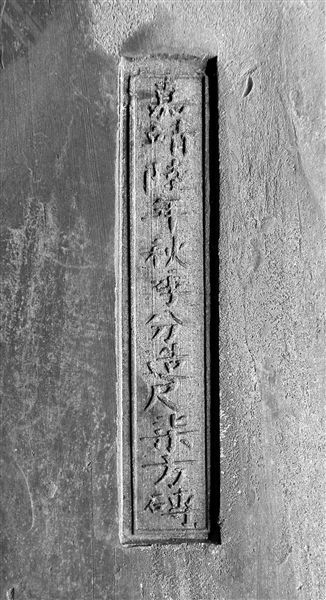 嘉靖陸年秋季分造尺柒方磚